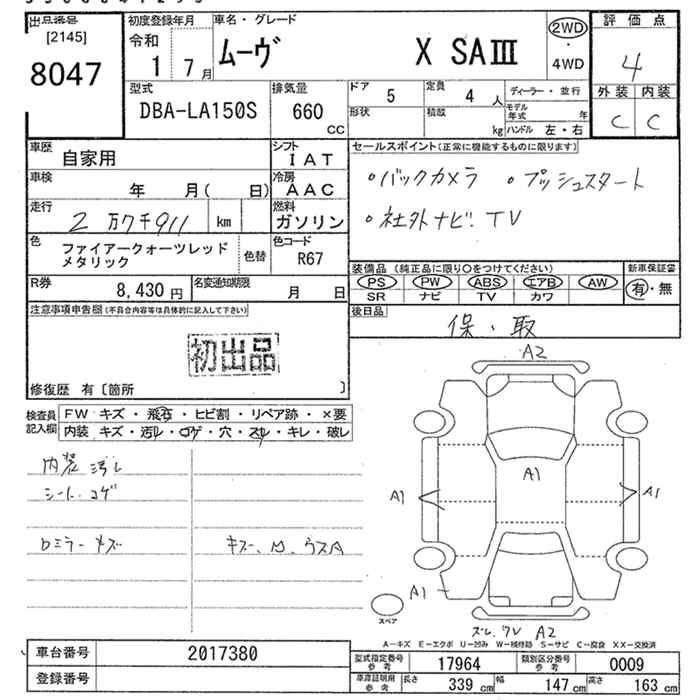 出品番号
[2145]
8047
初度登録年月
令和
1 7月
車名・グレード
ムーヴ X SAⅢ
2WD
・
4WD
評価点
4
外装 内装
C C
型式
DBA-LA150S
排気量
660
CC
ドア
5
定員
4 人
形状
積載
kg
ディーラー・並行
モデル年式 年
ハンドル 左・右
車歴
自家用
シフト
IAT
車検
年 月( 日)
冷房
AAC
走行
2万7千911 km
燃料
ガソリン
色
ファイアークォーツレッド
メタリック
色替
色コード
R67
R券
8,430円
名変通知期限
月 日
セールスポイント(正常に機能するものに限ります)
・バックカメラ ・プッシュスタート
・社外ナビ.TV
装備品(純正品に限り○をつけてください)
PS PW ABS エアB AW
SR ナビ TV カワ
新車保証書
有・無
後日品
保・取
注意事項申告欄(不具合内容等は具体的に記入して下さい)
初出品
修復歴 有〔箇所 〕
検査員
記入欄
FW キズ・飛石・ヒビ割・リペア跡・×要
内装 キズ・汚レ・コゲ・穴・スレ・キレ・破レ
内装汚レ
シートコゲ
A2
A1
A1
A1
A1
A2
スペア
A-キズ E-エクボ U-凹み W-補修跡 S-サビ C-腐食 XX-交換済
車台番号
2017380
登録番号
型式指定番号
参考
17964
類別区分番号
参考
0009
車庫証明用
参考
長さ
339 cm
幅
147 cm
高さ
163 cm